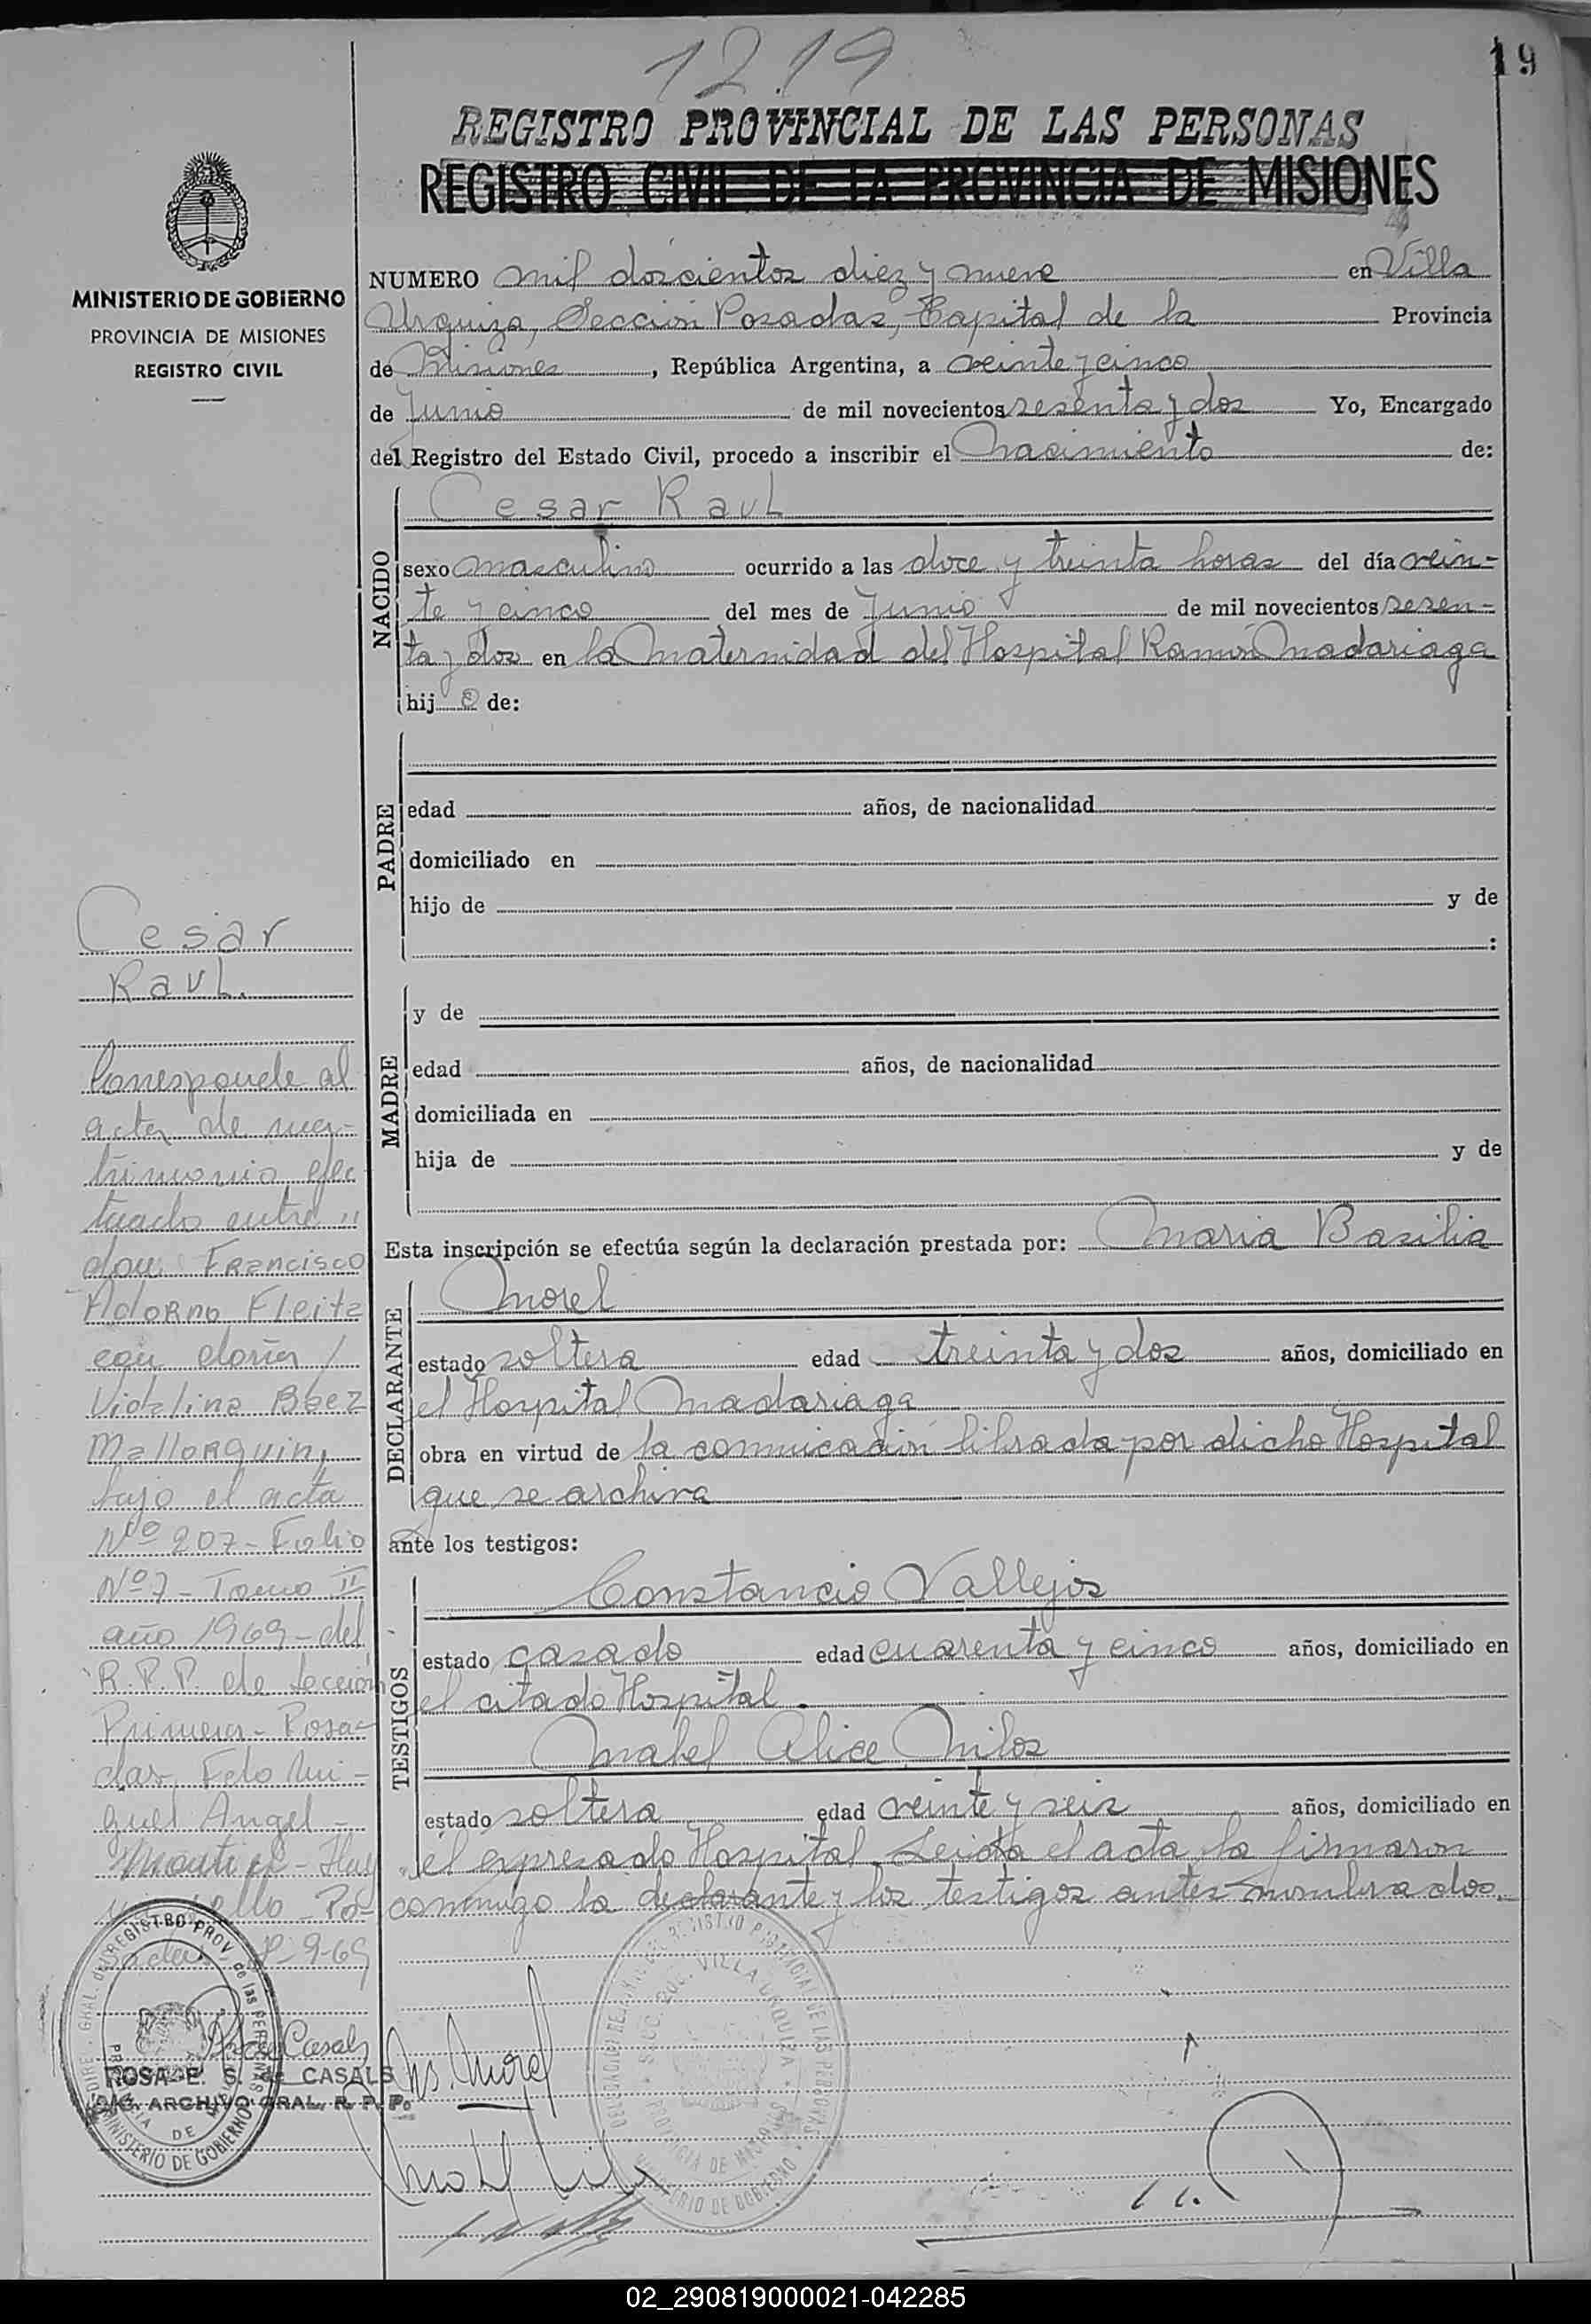 1219
19
REGISTRO PROVINCIAL DE LAS PERSONAS
REGISTRO CIVIL DE LA PROVINCIA DE MISIONES
MINISTERIO DE GOBIERNO
PROVINCIA DE MISIONES
REGISTRO CIVIL
NUMERO mil doscientos diez y nueve en Villa
Urquiza, Sección Posadas, Capital de la Provincia
de Misiones, República Argentina, a veinte y cinco
de Junio de mil novecientos sesenta y dos Yo, Encargado
del Registro del Estado Civil, procedo a inscribir el Nacimiento de:
NACIDO
Cesar Raul
sexo masculino ocurrido a las doce y treinta horas del día vein-
te y cinco del mes de Junio de mil novecientos sesen-
ta y dos en la Maternidad del Hospital Ramón Madariaga
hijo de:
PADRE
edad años, de nacionalidad
domiciliado en
hijo de y de
:
MADRE
y de
edad años, de nacionalidad
domiciliada en
hija de y de
Esta inscripción se efectúa según la declaración prestada por: Maria Basilia
DECLARANTE
Morel
estado soltera edad treinta y dos años, domiciliado en
el Hospital Madariaga
obra en virtud de la comunicación librada por dicho Hospital
que se archiva
ante los testigos:
TESTIGOS
Constancio Vallejos
estado casado edad cuarenta y cinco años, domiciliado en
el citado Hospital.
Mabel Alice Milos
estado soltera edad veinte y seis años, domiciliado en
el expresado Hospital. Leida el acta, la firmaron
conmigo la declarante y los testigos antes nombrados.
Cesar
Raul.
Corresponde al
acta de ma-
trimonio efec
tuado entre "
don Francisco
Adorno Fleita
con doña /
Vidalina Báez
Mallorquin,
bajo el acta
Nº 207 - Folio
Nº 7 - Tomo II
año 1969 - del
R.P.P. de Sección
Primera - Posa-
das, Fdo Mi-
guel Angel -
Montiel - Hay
un sello - Po-
sadas 9-69
Casals
ROSA E. S. de CASALS
ARCHIVO GRAL. R. P. P.
REGISTRO PROV. de las PERSONAS
MINISTERIO DE GOBIERNO
Ms. Morel
VILLA URQUIZA
PROVINCIA DE MISIONES
MINISTERIO DE GOBIERNO
02_290819000021-042285